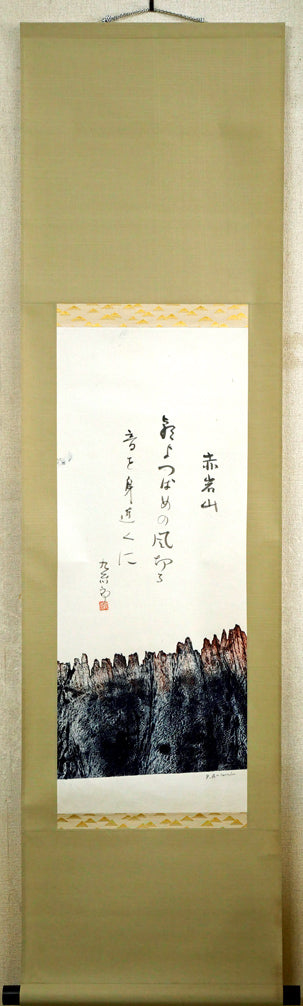 赤岩山
つばめの風切る
音を身近くに